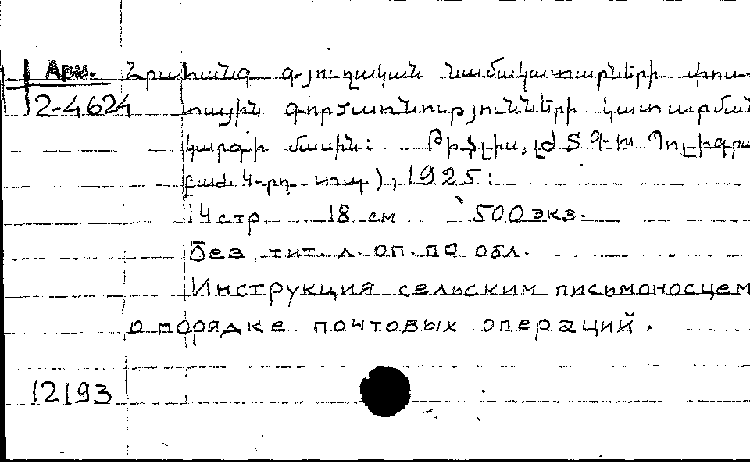 Арм. Հրահանգ գյուղական նամակատարների փոս-
2-4624 տային գործառնությունների կատարման
կարգի մասին: Թիֆլիս, ԺՏԳԽ Պոլիգրա
բաժ. 4-րդ տպ), 1925:
14 стр 18 см 500 экз.
Без тит. л. оп. по обл.
Инструкция сельским письмоносцем
о порядке почтовых операций.
12193